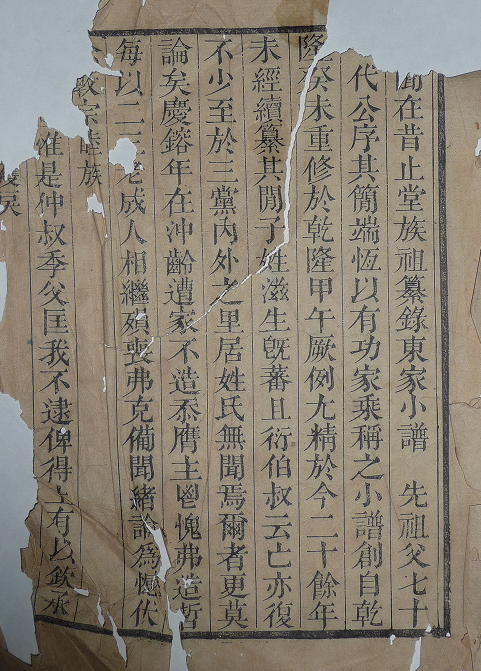 聞在昔止堂族祖纂錄東家小譜 先祖父七十
代公序其簡端恆以有功家乘稱之小譜創自乾
隆癸未重修於乾隆甲午厥例尤精於今二十餘年
未經續纂其閒子姓滋生旣蕃且衍伯叔云亡亦復
不少至於三黨內外之里居姓氏無聞焉爾者更莫
論矣慶鎔年在沖齡遭家不造忝膺主鬯愧弗造哲
每以二三老成人相繼殂喪弗克備聞緒論為憾伏
敦宗睦族
惟是仲叔季父匡我不逮俾得上有以欽承